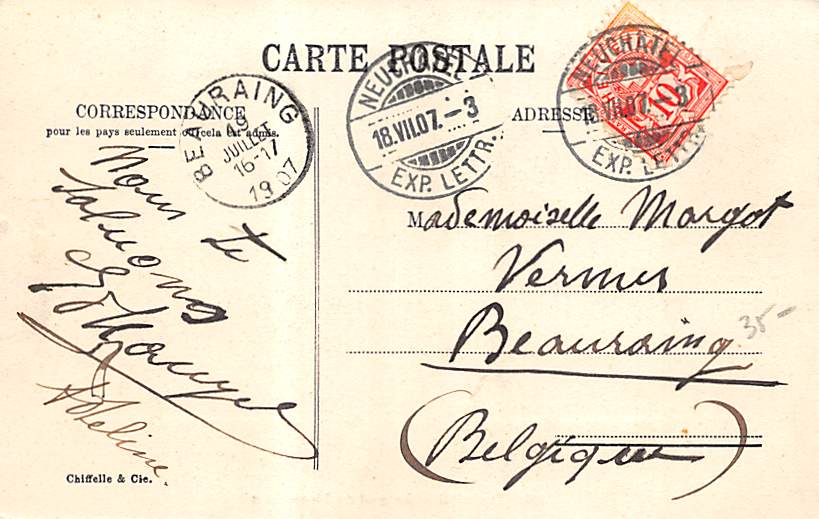 CARTE POSTALE
CORRESPONDANCE
pour les pays seulement où cela est admis.
ADRESSE
BEAURAING
19
JUILLET
16-17
1907
NEUCHATEL
18.VII.07.-3
EXP. LETTR.
NEUCHATEL 2
18.VII.07.-3
EXP. LETTR.
10
Nous te
saluons
Mademoiselle Margot
Vermer
Beauraing
(Belgique)
35-
Chiffelle & Cie.